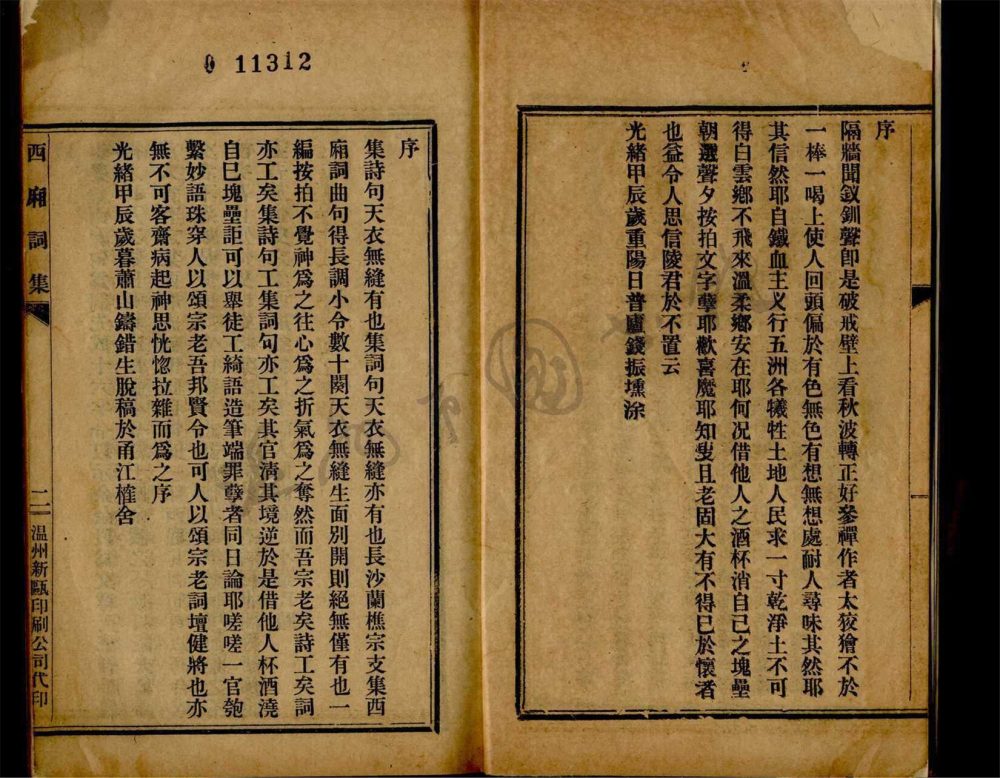 0 11312
序
隔牆聞釵釧聲卽是破戒壁上看秋波轉正好參禪作者太狡獪不於
一棒一喝上使人回頭偏於有色無色有想無想處耐人尋味其然耶
其信然耶自鐵血主义行五洲各犧牲土地人民求一寸乾淨土不可
得白雲鄉不飛來溫柔鄉安在耶何況借他人之酒杯消自己之塊壘
朝選聲夕按拍文字孽耶歡喜魔耶知叟且老固大有不得已於懷者
也益令人思信陵君於不置云
光緖甲辰歲重陽日普廬錢振壎涂
序
集詩句天衣無縫有也集詞句天衣無縫亦有也長沙蘭樵宗支集西
廂詞曲句得長調小令數十闋天衣無縫生面別開則絕無僅有也一
編按拍不覺神爲之往心爲之折氣爲之奪然而吾宗老矣詩工矣詞
亦工矣集詩句工集詞句亦工矣其官淸其境逆於是借他人杯酒澆
自己塊壘詎可以與徒工綺語造筆端罪孽者同日論耶嗟嗟一官匏
繫妙語珠穿人以頌宗老吾邦賢令也可人以頌宗老詞壇健將也亦
無不可客齋病起神思恍惚拉雜而爲之序
光緖甲辰歲暮蕭山鑄錯生脫稿於甬江榷舍
西廂詞集
二
温州新甌印刷公司代印